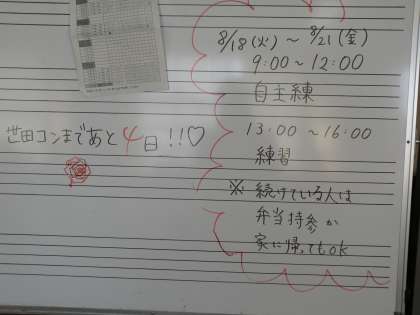 8/18(火)～8/21(金)
9:00～12:00
自主練
13:00～16:00
練習
※続けている人は
弁当持参か
家に帰ってもok
世田コンまであと4日!!♡